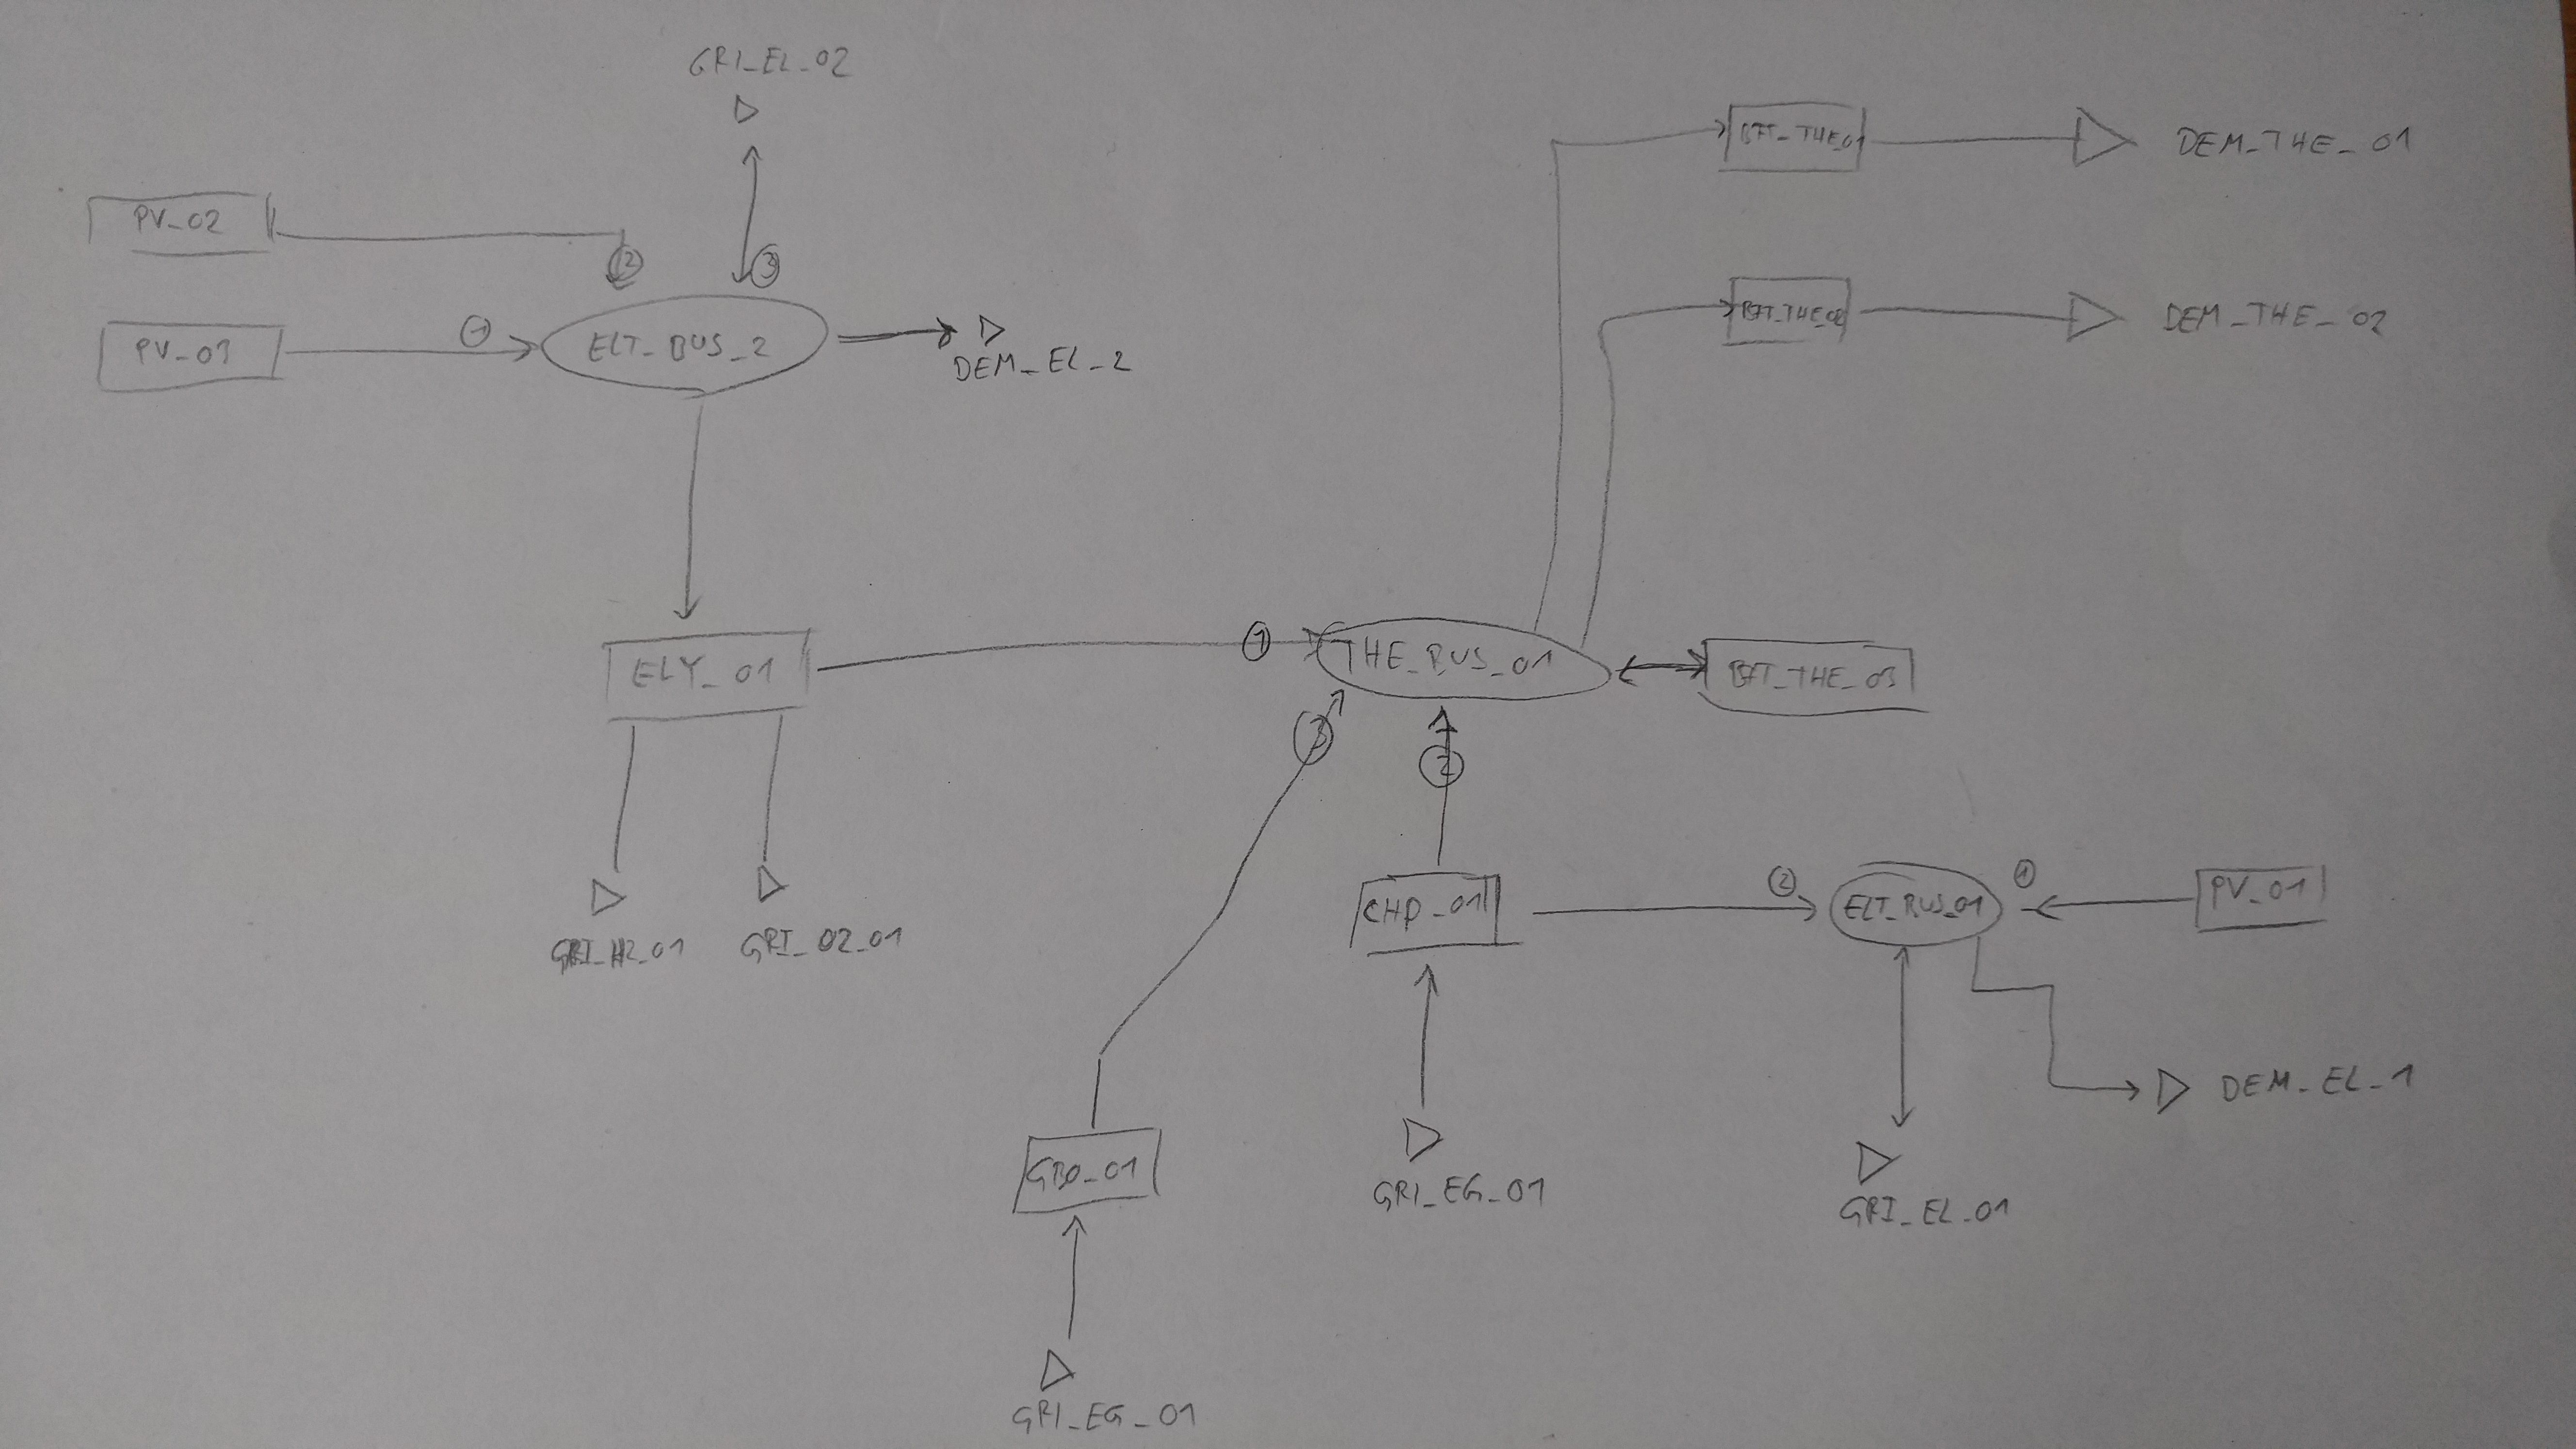 GRI_EL_02
PV_02
②
③
PV_01
①
ELT_BUS_2
DEM_EL_2
BFT_THE_01
DEM_THE_01
BFT_THE_02
DEM_THE_02
ELY_01
①
THE_BUS_01
BFT_THE_03
③
②
GRI_H2_01
GRI_O2_01
CHP_01
②
ELT_BUS_01
①
PV_01
DEM_EL_1
GBO_01
GRI_EG_01
GRI_EL_01
GRI_EG_01